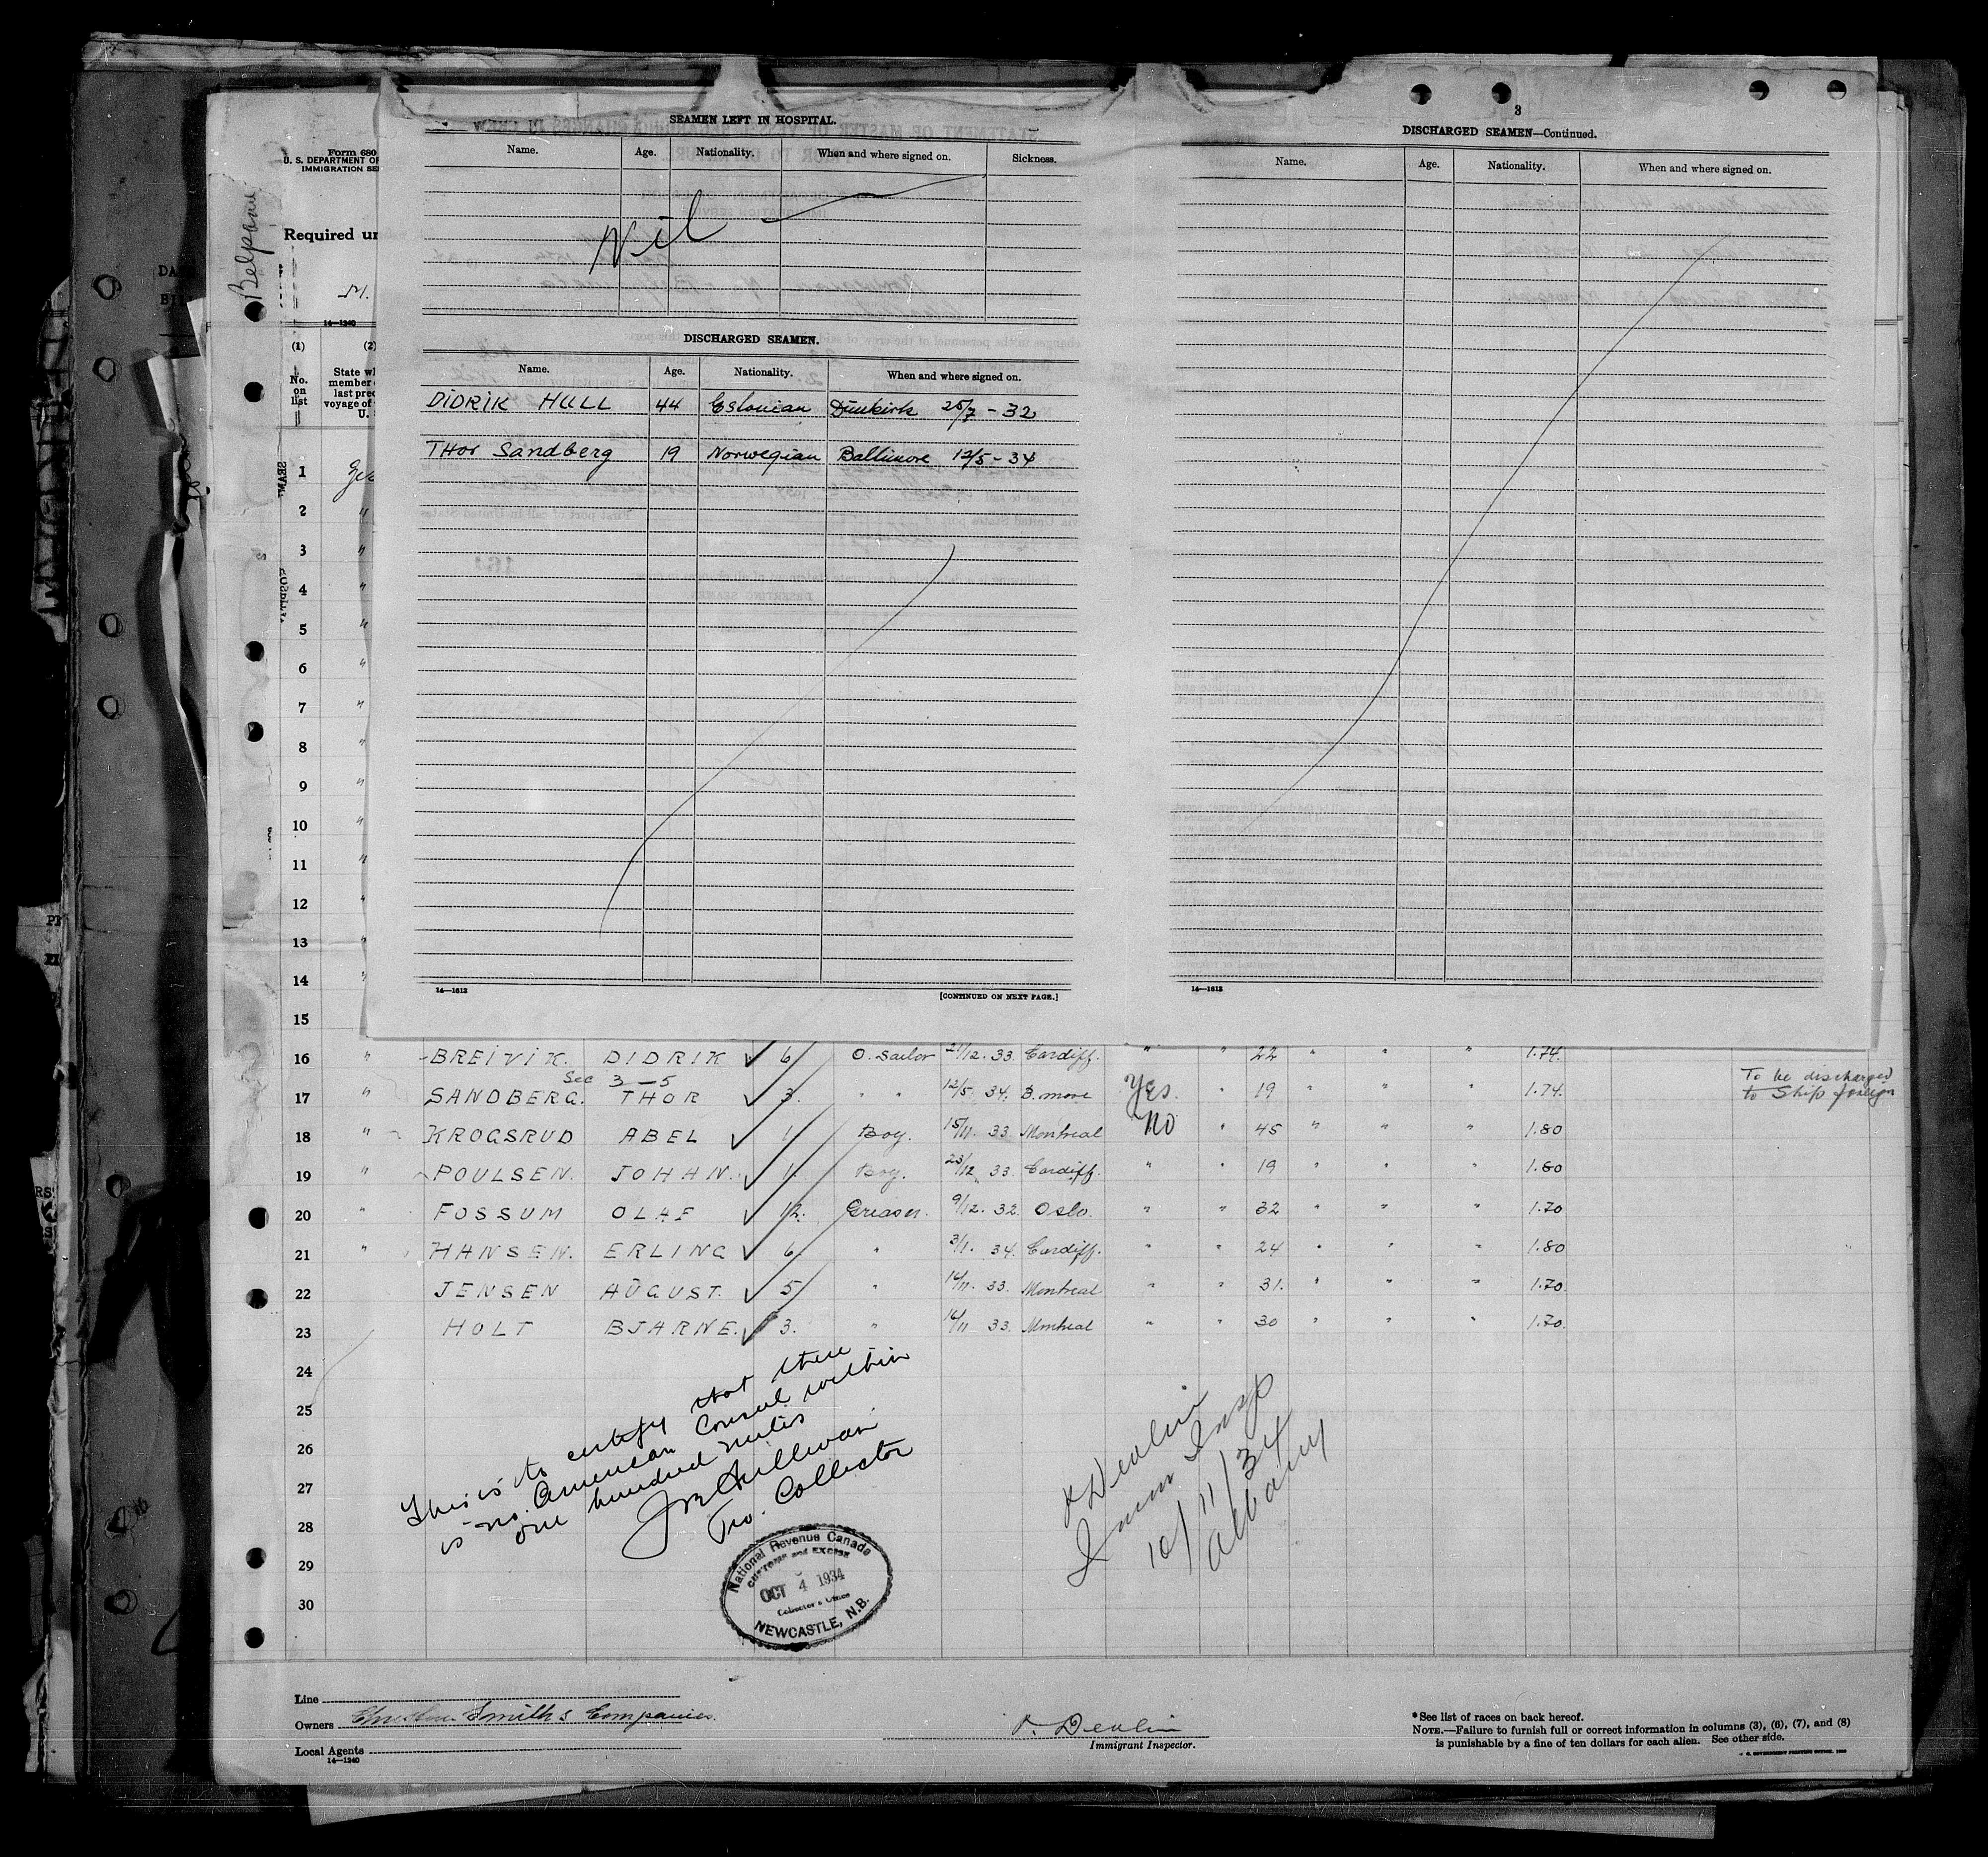 SEAMEN LEFT IN HOSPITAL.
Name. Age. Nationality. When and where signed on. Sickness.
Nil
DISCHARGED SEAMEN.
Name. Age. Nationality. When and where signed on.
DIDRIK HULL 44 Estonian Dünkirk 25/7 - 32
THor Sandberg 19 Norwegian Baltimore 12/5 - 34
14—1613
[CONTINUED ON NEXT PAGE.]
3
DISCHARGED SEAMEN—Continued.
Name. Age. Nationality. When and where signed on.
14—1613
Form 680
U. S. DEPARTMENT OF
IMMIGRATION SE
Required un
M.
14—1240
(1) (2)
No. on list
State wh
member
last prec
voyage of
U.
1
2 "
3 "
4 "
5 "
6 "
7 "
8 "
9 "
10 "
11 "
12 "
13 "
14 "
15
16 " BREIVIK. DIDRIK ✓ 6 O. Sailor 21/12. 33. Cardiff. " " 22 " " " 1.74.
Sec 3-5
17 " SANDBERG. THOR ✓ 3. " " 12/5 34. B.more Yes. " 19 " " " 1.74. To be discharged
to Ship foreign
18 " KROGSRUD ABEL ✓ 1 Boy. 15/11. 33. Montreal No " 45 " " " 1.80
19 " POULSEN. JOHAN. ✓ 1. Boy. 23/12 33. Cardiff. " " 19 " " " 1.80
20 " FOSSUM OLAF ✓ 12. Greaser. 9/12. 32. Oslo. " " 32 " " " 1.70
21 " HANSEN. ERLING ✓ 6. " 3/1. 34. Cardiff. " " 24 " " " 1.80
22 JENSEN AUGUST. ✓ 5 " 16/11. 33. Montreal " " 31. " " " 1.70.
23 HOLT BJARNE. ✓ 3. " 16/11 33. Montreal " " 30 " " " 1.70.
24
25
26
27
28
29
30
This is to certify that there
is no American Consul within
one hundred miles
J B Sullivan
Collector
National Revenue Canada
CUSTOMS and EXCISE
OCT 4 1934
Collector's Office
NEWCASTLE, N.B.
P Devlin
Imm Insp
10/11/34
Albany
Line
Owners Smith's Companies.
Local Agents
14—1240
P. Devlin
Immigrant Inspector.
*See list of races on back hereof.
NOTE.—Failure to furnish full or correct information in columns (3), (6), (7), and (8)
is punishable by a fine of ten dollars for each alien. See other side.
U. S. GOVERNMENT PRINTING OFFICE